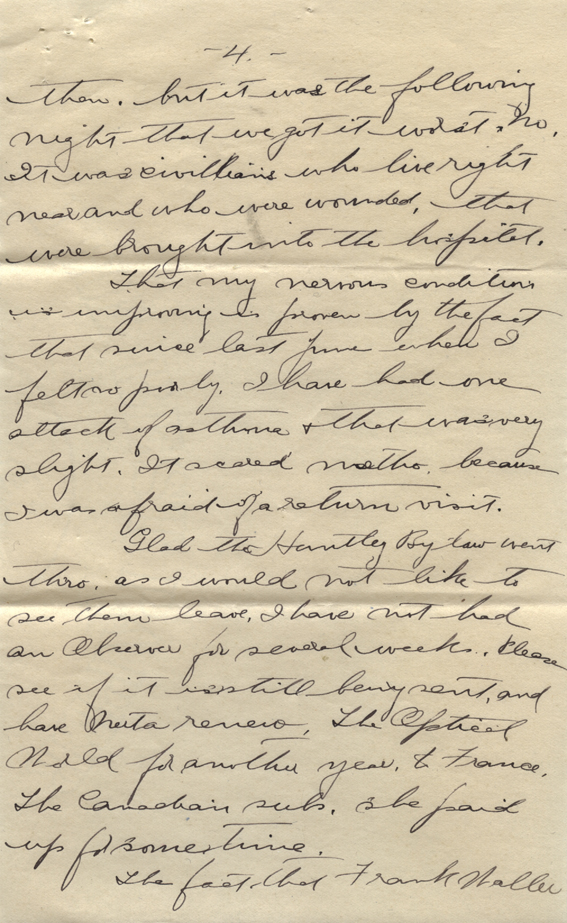 -4.-
then. but it was the following
night that we got it worst. No,
it was civillians who live right
near and who were wounded, that
were brought into the hospital.
That my nervous condition
is improving is proven by the fact
that since last June when I
felt so poorly. I have had one
attack of asthma + that was very
slight. It scared me tho. because
I was afraid of a return visit.
Glad the Huntley By law went
thro. as I would not like to
see them leave. I have not had
an Observer for several weeks. Please
see if it is still being sent, and
have Neita renew. The Optical
World for another year. to France.
The Canadian subs. she paid
up for sometime.
The fact that Frank Waller